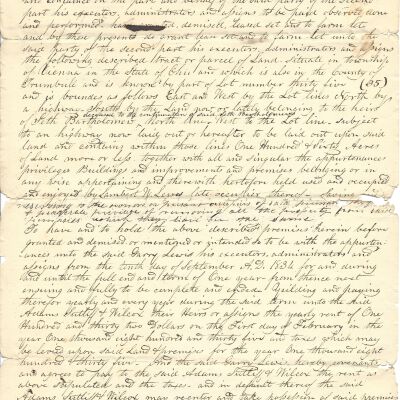 and contained on the part and behalf of the said party of the second
part his executors, administrators and assigns to be paid observed done
and performed has granted, demised, leased set and to farm let
and by these presents do grant lease set and to farm let unto the
said party of the second part his executors, administrators and assigns
the following described tract or parcel of Land situate in township
of Vienna in the State of Ohio and which is also in the County of
Trumbull and is known by part of Lot number thirty five (35)
and is bounded as follows East and West by the Lot lines North by
a highway South by the Land now or lately belonging to the heirs
of Seth Bartholomew North line, West is the Lot line. Subject
to an highway now laid out or hereafter to be laid out upon said
land and containing within those lines One Hundred & Forty Acres
of Land more or less together with all and singular the appurtenances
privileges Buildings and improvements and premises belonging or in
any wise appertaining and therewith heretofore held used and occupied
and enjoyed by Lambert W Lewis late occupier thereof
To have and to hold the above described premises herein before
granted and demised or mentioned or intended so to be with the appurten-
ances unto the said Garry Lewis his executors administrators and
assigns from the tenth day of September A.D. 1834 for and during
and until the full end and term of One year from thence next
ensuing and fully to be complete and ended. Yielding and paying
therefor yearly and every year during the said term unto the said
Adams Suttliff & Wilcox their Heirs or assigns the yearly rent of One
Hundred and thirty two Dollars on the First day of February in the
year One thousand eight hundred and thirty five and taxes which may
be levied upon said Land & premises for the year One thousand eight
hundred & thirty five. And the said Garry Lewis hereby covenants
and agrees to pay to the said Adams Suttliff & Wilcox the rent as
above stipulated and the taxes. and in default thereof the said
Adams Suttliff & Wilcox may reenter and take possession of said premises